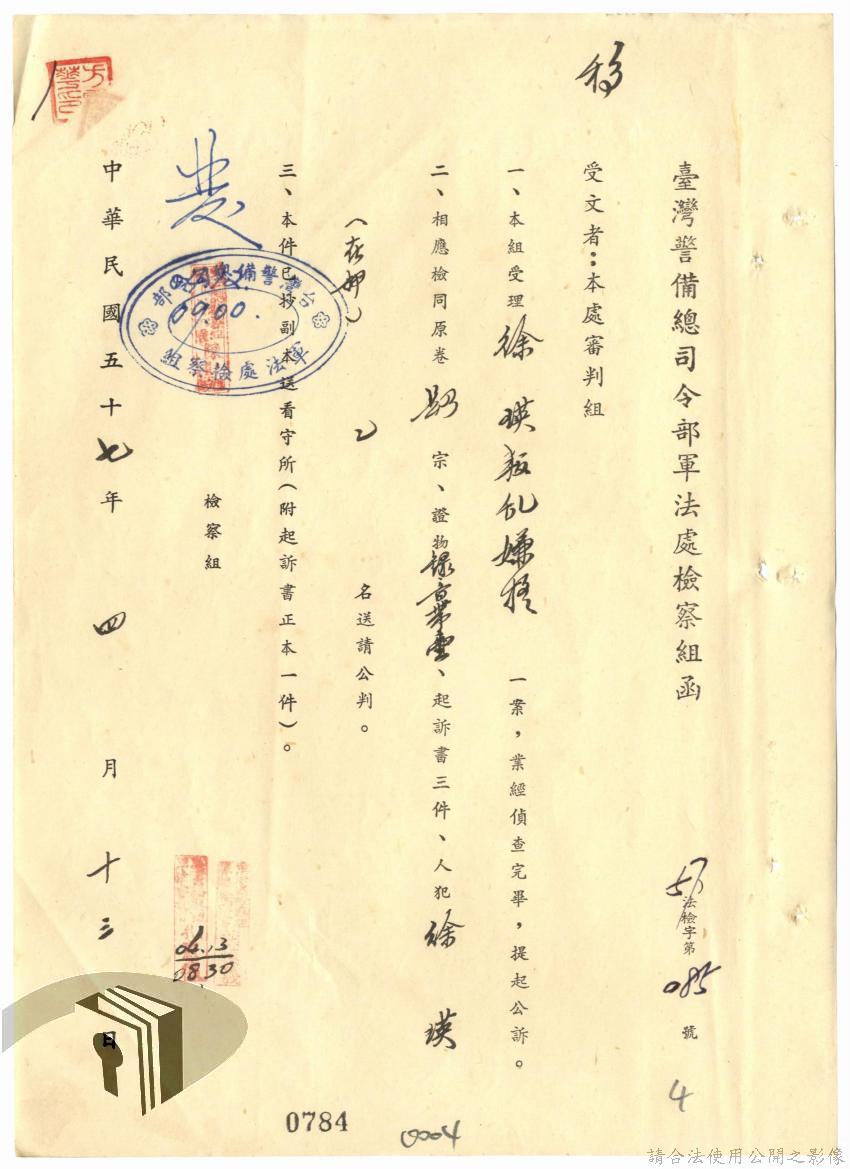 稿
臺灣警備總司令部軍法處檢察組函
57法檢字第085號
受文者:本處審判組
一、本組受理徐瑛叛乱嫌疑一案,業經偵查完畢,提起公訴。
二、相應檢同原卷 宗、證物錄音帶壹、起訴書三件、人犯徐瑛
(在押)乙名送請公判。
三、本件已抄副本送看守所(附起訴書正本一件)。
檢察組
中華民國五十七年四月十三日
台灣警備總司令部
0900.
軍法處檢察組
04.13
0830
4
0784
0004
請合法使用公開之影像